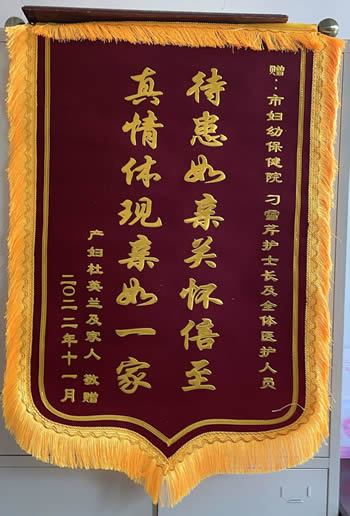 赠：市妇幼保健院 刁雪芹护士长及全体医护人员
待患如亲关怀倍至
真情体现亲如一家
产妇杜英兰及家人 敬赠
二〇二二年十一月